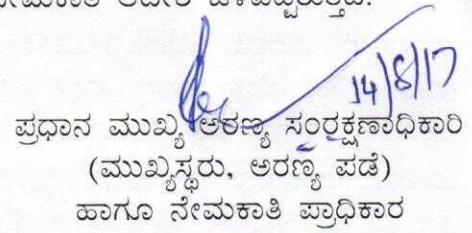 14/8/17
ಪ್ರಧಾನ ಮುಖ್ಯ ಅರಣ್ಯ ಸಂರಕ್ಷಣಾಧಿಕಾರಿ
(ಮುಖ್ಯಸ್ಥರು, ಅರಣ್ಯ ಪಡೆ)
ಹಾಗೂ ನೇಮಕಾತಿ ಪ್ರಾಧಿಕಾರ